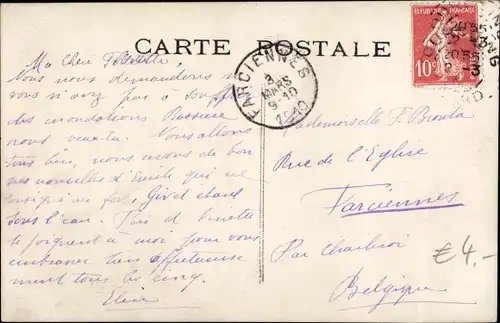 CARTE POSTALE
REPUBLIQUE FRANÇAISE
10c
FARCIENNES
3
MARS
9-10
1910
Ma chère
Nous nous demandons si
vous n'avez pas à souffrir
des inondations Rassure
nous veux-tu. Nous allons
tous bien, nous avons de bon
nes nouvelles d'Emile qui est
consigné au fort, Givet étant
sous l'eau.
se joignent à moi pour vous
embrasser bien affectueuse
ment tous les cinq.
Elise
Mademoiselle F. Brouta
Rue de l'Eglise
Farciennes
Par Charleroi
Belgique
€4.-